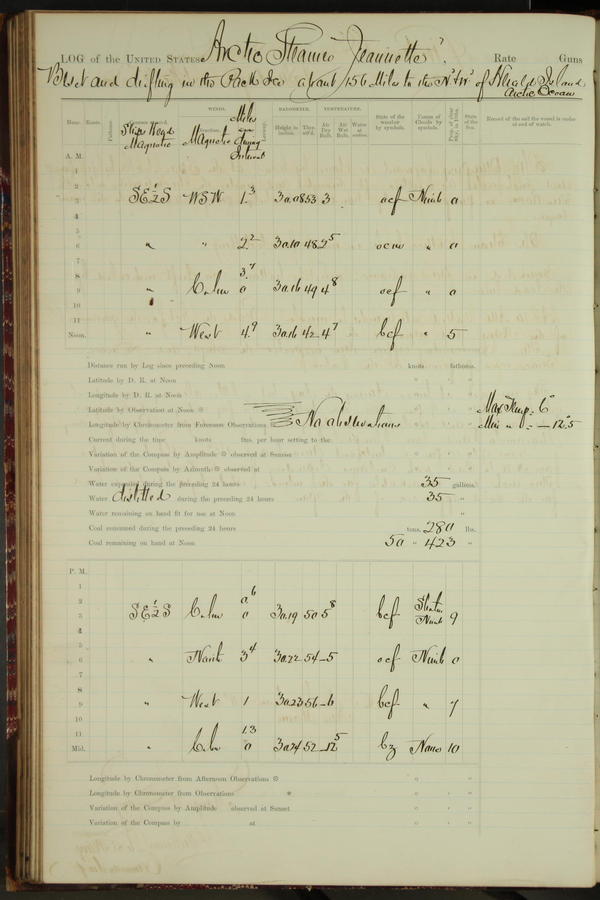 LOG of the UNITED STATES Arctic Steamer "Jeannette". Rate Guns
Beset and drifting in the Pack Ice about 156 Miles to the Nd & Wd of Herald Island
Arctic Ocean
WINDS. BAROMETER. TEMPERATURE.
Hour. Knots. Ships Head Magnetic Magnetic Miles during Interval Height in inches. Ther. att'd. Air Dry Bulb. Air Wet Bulb. Water at surface. State of the weather by symbols. Forms of Clouds by symbols. Prop. of clear sky, in 10ths. State of the Sea. Record of the sail the vessel is under at end of watch.
A. M.
1
2
3 SE½S WSW 1.3 30.08 53 3 ocf Nimb 0
4
5
6 " " 2.2 30.10 48 2.5 ocm " 0
7
8 3.7
9 " Calm 0 30.16 49 4.8 ocf " 0
10
11
Noon. " West 4.9 30.16 42 -4.7 bcf " 5
Distance run by Log since preceding Noon knots fathoms.
Latitude by D. R. at Noon
Longitude by D. R. at Noon
Latitude by Observation at Noon Max Temp = 6°
Longitude by Chronometer from Forenoon Observations No observations Min " " = -12.5
Current during the time knots fms. per hour setting to the
Variation of the Compass by Amplitude observed at Sunrise
Variation of the Compass by Azimuth observed at
Water expended during the preceding 24 hours 35 gallons.
Water distilled during the preceding 24 hours 35 "
Water remaining on hand fit for use at Noon "
Coal consumed during the preceding 24 hours tons, 280 lbs.
Coal remaining on hand at Noon 50 " 423 "
P. M.
1
2 0.6
3 SE½S Calm 0 30.19 50 5.8 bcf Stratus Nimb 9
4
5
6 " North 3.4 30.22 54 -5 ocf Nimb 0
7
8
9 " West 1 30.23 56 -6 bcf " 7
10
11 1.3
Mid. " Calm 0 30.24 52 -12.5 bz None 10
Longitude by Chronometer from Afternoon Observations
Longitude by Chronometer from Observations
Variation of the Compass by Amplitude observed at Sunset
Variation of the Compass by at